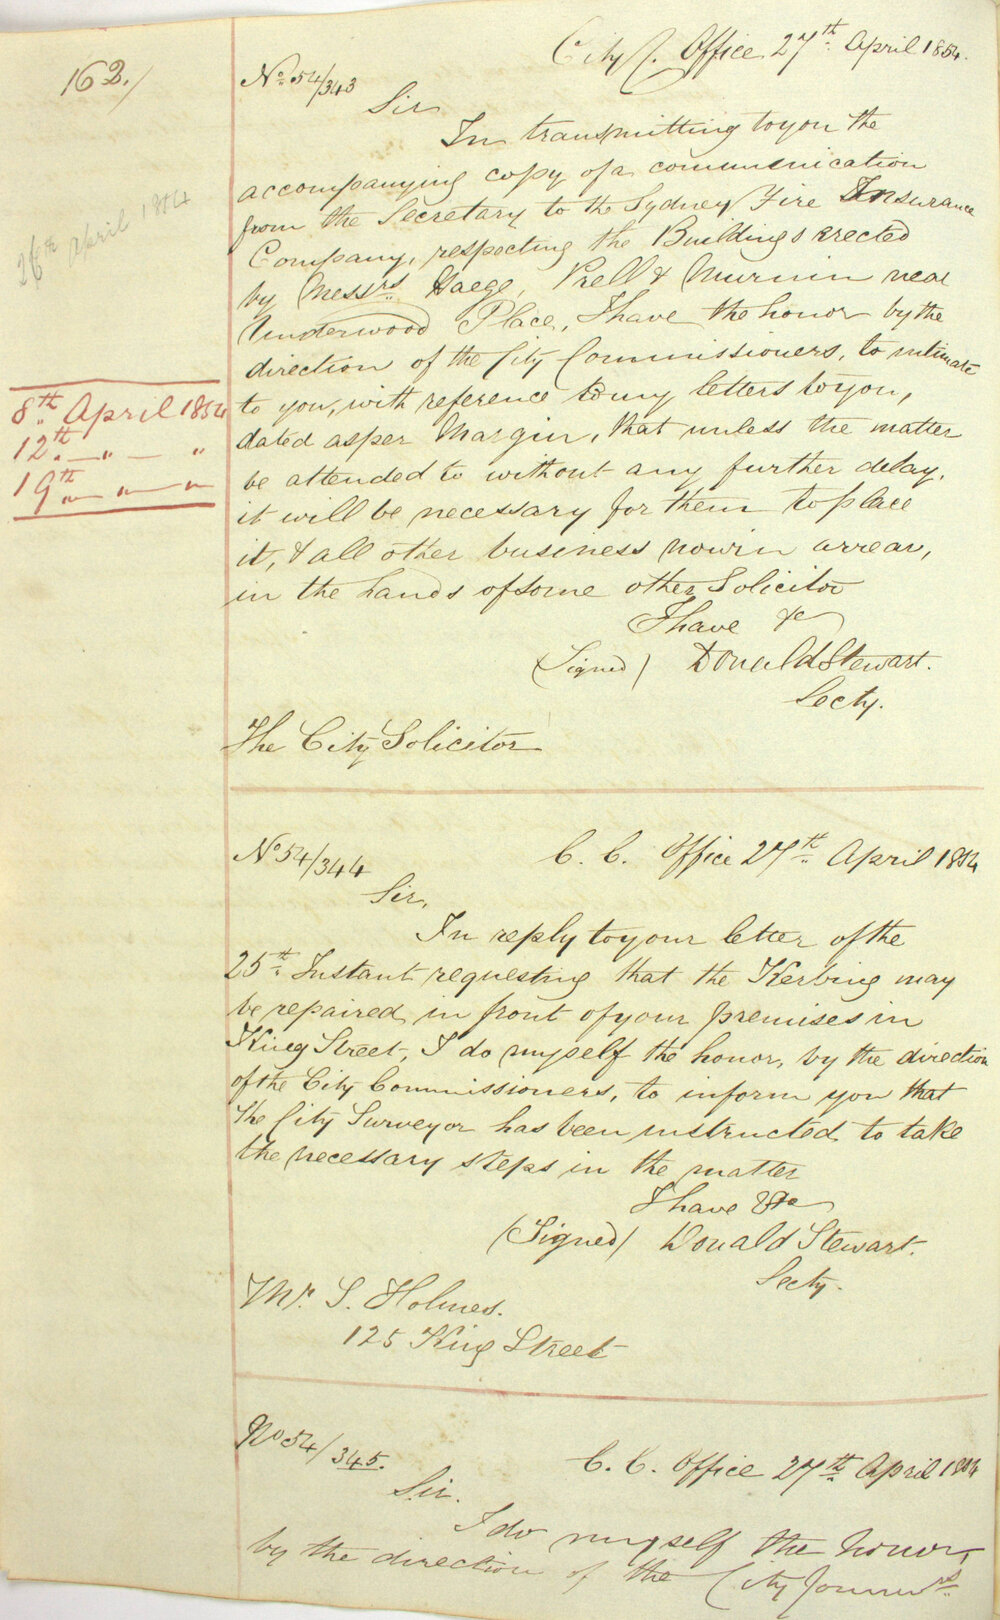 162./
City C. Office 27th April 1854.
No. 54/343
Sir
In transmitting to you the
accompanying copy of a communication
from the Secretary to the Sydney Fire Insurance
Company, respecting the Buildings erected
by Messrs. Gaege, Prell & Murnin near
Underwood Place, I have the honor by the
direction of the City Commissioners, to intimate
to you, with reference to my letters to you,
dated as per Margin, that unless the matter
be attended to without any further delay,
it will be necessary for them to place
it, & all other business now in arrear,
in the hands of some other Solicitor
I have &c
(Signed) Donald Stewart.
Secty.
The City Solicitor
26th April 1854
8th. April 1854
12th. — " — "
19th " — " — "
No 54/344
C. C. Office 27th. April 1854
Sir,
In reply to your letter of the
25th. Instant requesting that the Kerbing may
be repaired in front of your premises in
King Street, I do myself the honor, by the direction
of the City Commissioners, to inform you that
the City Surveyor has been instructed to take
the necessary steps in the matter
I have &c
(Signed) Donald Stewart.
Secty.
Mr. S. Holmes.
125 King Street
No 54/345.
C. C. Office 27th. April 1854
Sir.
I do myself the honor,
by the direction of the City Commrs.